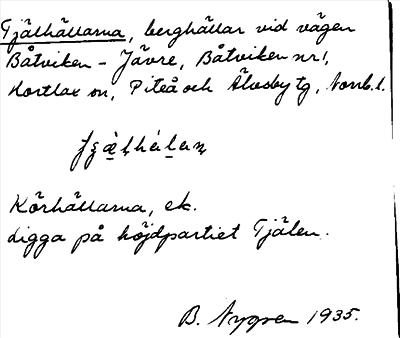 Tjälhällarna, berghällar vid vägen
Båtviken - Jävre, Båtviken nr 1,
Hortlax sn, Piteå och Älvsby tg, Norrb.l.
Körhällarna, ek.
digga på höjdpartiet Tjälen.
B. Nygren 1935.